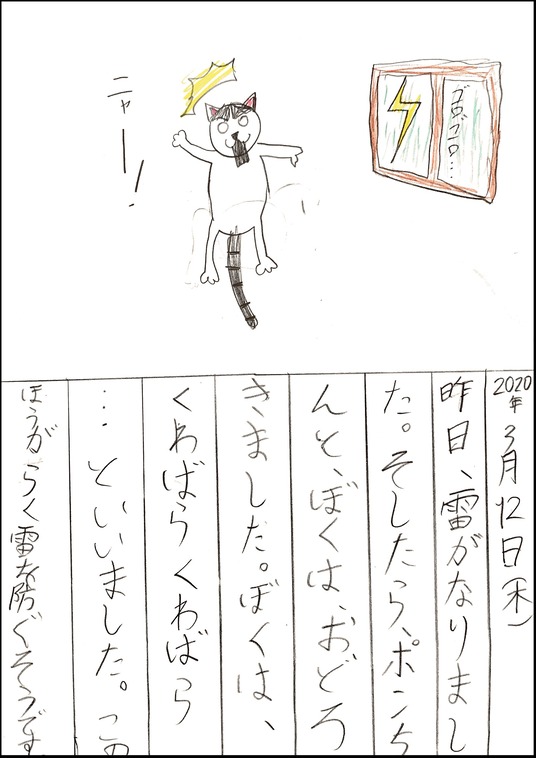 ニャーー!
ゴロゴロ…
2020年3月12日(木)
昨日、雷がなりまし
た。そしたら、ポンち
んと、ぼくは、おどろ
きました。ぼくは、
くわばらくわばら
…といいました。この
ほうがらく雷を防ぐそうです